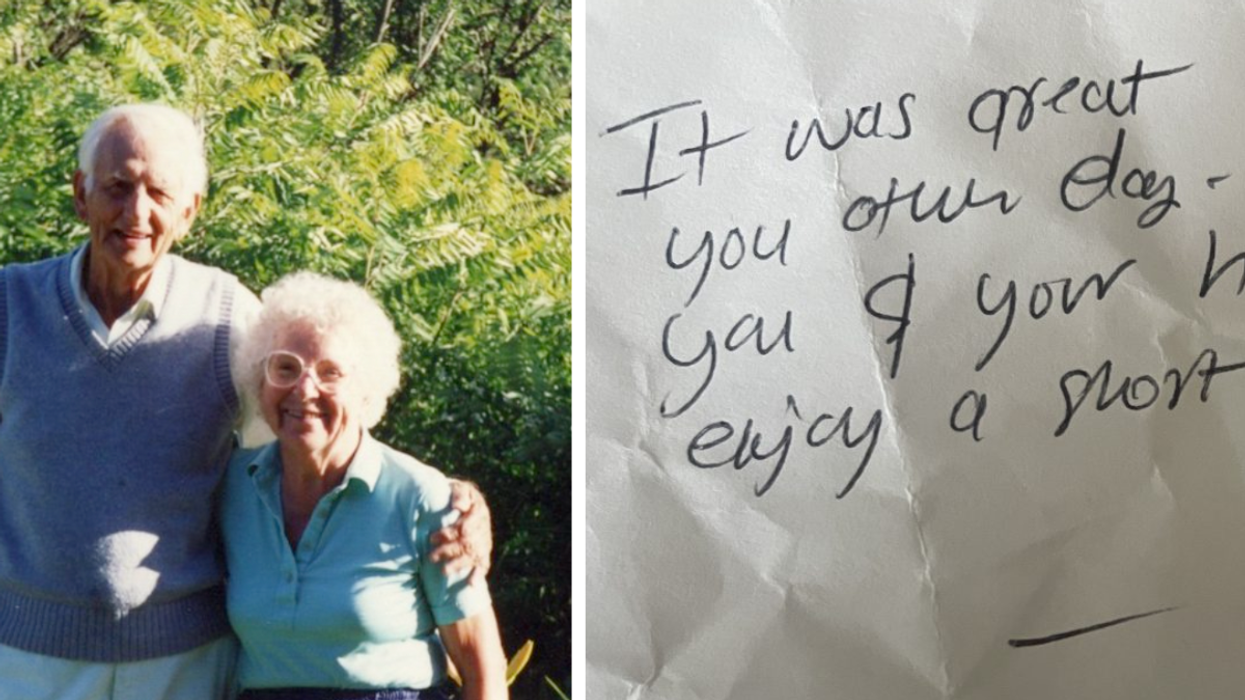 It was great
you other day.
you & your h
enjoy a short